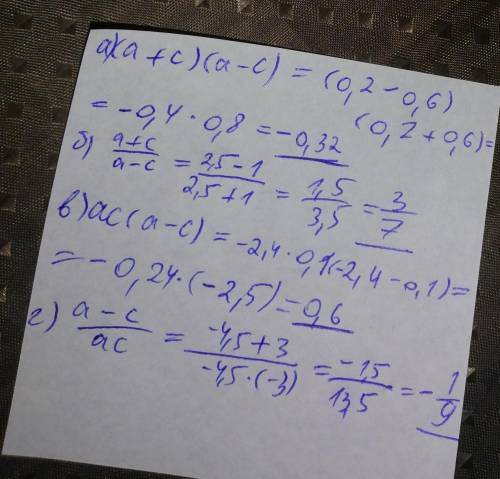 а) (a+c)(a-c) = (0,2-0,6)
(0,2+0,6)=
= -0,4 · 0,8 = -0,32
б) \frac{a+c}{a-c} = \frac{2,5-1}{2,5+1} = \frac{1,5}{3,5} = \frac{3}{7}
в) ac(a-c) = -2,4 · 0,1(-2,4-0,1)=
= -0,24·(-2,5)=0,6
г) \frac{a-c}{ac} = \frac{-4,5+3}{-4,5·(-3)} = \frac{-1,5}{13,5} = -\frac{1}{9}